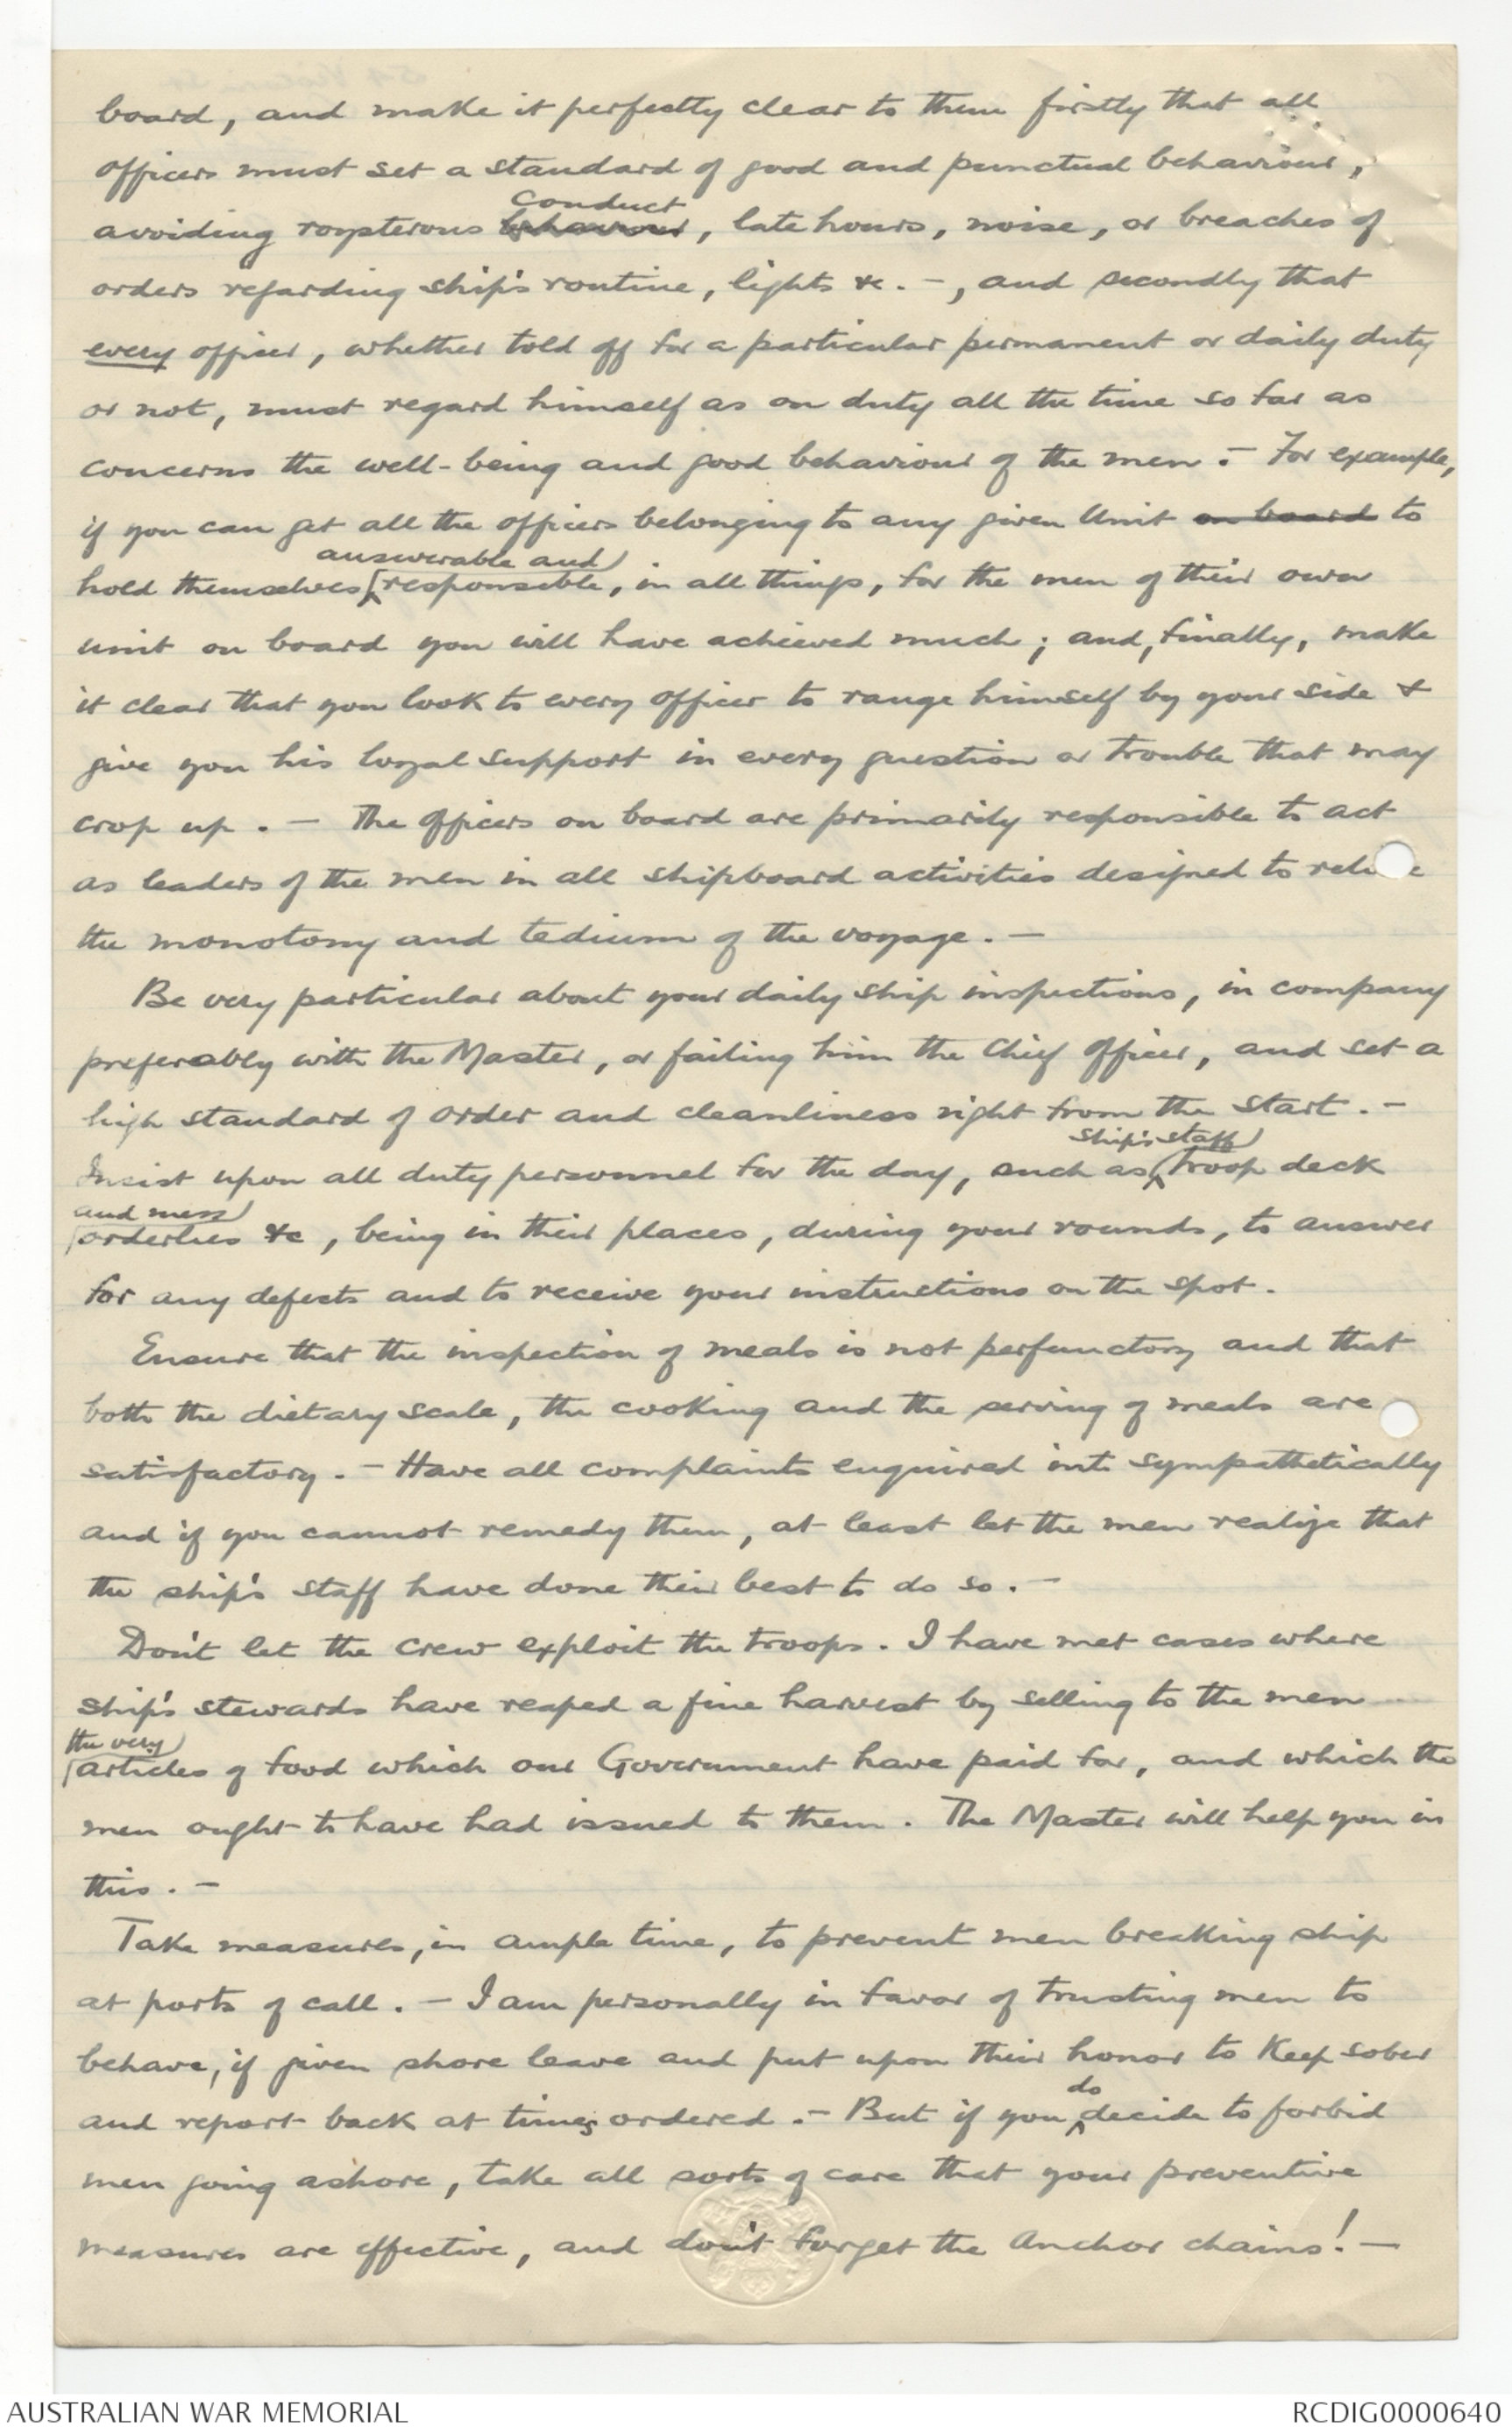 board, and make it perfectly clear to them firstly that all
officers must set a standard of good and punctual behaviour,
conduct
avoiding roysterous behaviour, late hours, noise, or breaches of
orders regarding ship's routine, lights &c. -, and secondly that
every officer, whether told off for a particular permanent or daily duty
or not, must regard himself as on duty all the time so far as
concerns the well-being and good behaviour of the men. - For example,
if you can get all the officers belonging to any given Unit on board to
answerable and
hold themselves responsible, in all things, for the men of their own
unit on board you will have achieved much; and, finally, make
it clear that you look to every officer to range himself by your side &
give you his loyal support in every question or trouble that may
crop up. - The officers on board are primarily responsible to act
as leaders of the men in all shipboard activities designed to reli e
the monotony and tedium of the voyage. -
Be very particular about your daily ship inspections, in company
preferably with the Master, or failing him the Chief Officer, and set a
high standard of order and cleanliness right from the start. -
ship's staff
Insist upon all duty personnel for the day, such as troop deck
and mess
orderlies &c, being in their places, during your rounds, to answer
for any defects and to receive your instructions on the spot.
Ensure that the inspection of meals is not perfunctory and that
both the dietary scale, the cooking and the serving of meals are
satisfactory. - Have all complaints enquired into sympathetically
and if you cannot remedy them, at least let the men realize that
the ship's staff have done their best to do so. -
Don't let the crew exploit the troops. I have met cases where
ship's stewards have reaped a fine harvest by selling to the men
the very
articles of food which our Government have paid for, and which the
men ought to have had issued to them. The Master will help you in
this. -
Take measures, in ample time, to prevent men breaking ship
at ports of call. - I am personally in favor of trusting men to
behave, if given shore leave and put upon their honor to keep sober
do
and report back at times ordered. - But if you decide to forbid
men going ashore, take all sorts of care that your preventive
measures are effective, and don't forget the Anchor chains! -
AUSTRALIAN WAR MEMORIAL
RCDIG0000640